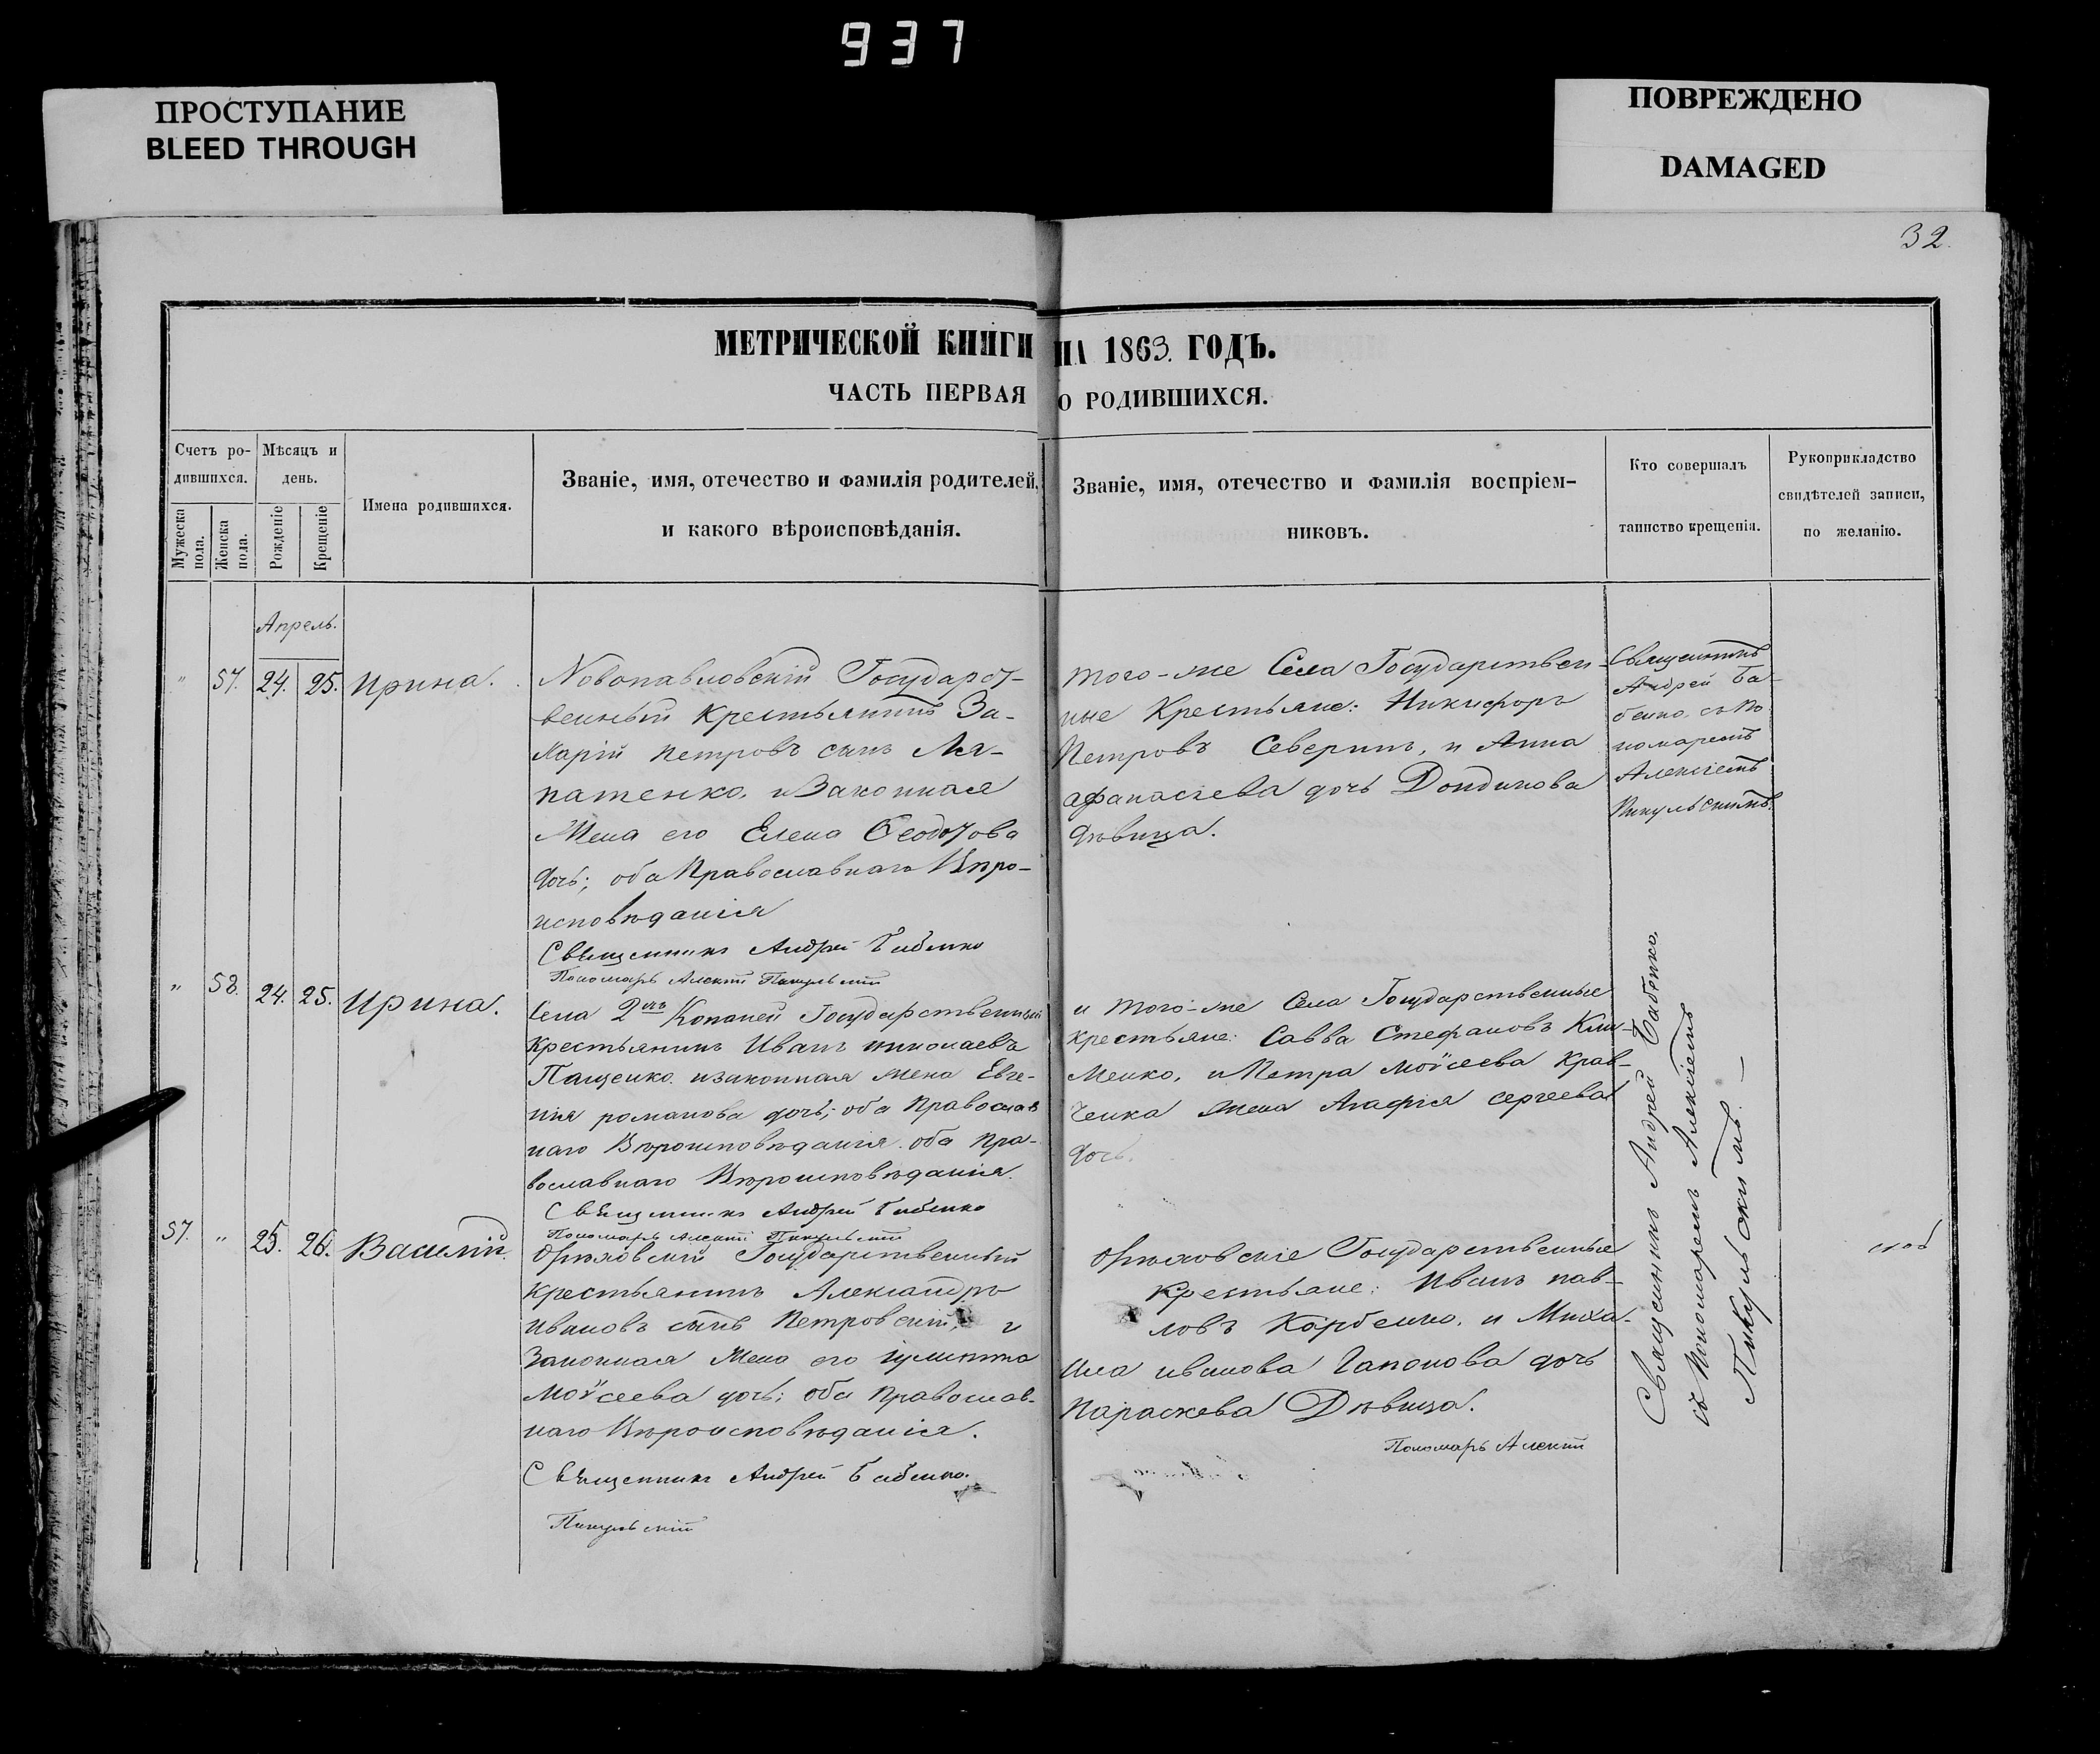 937
ПРОСТУПАНИЕ
BLEED THROUGH
ПОВРЕЖДЕНО
DAMAGED
32.
МЕТРИЧЕСКОЙ КНИГИ НА 1863. ГОДЪ.
ЧАСТЬ ПЕРВАЯ О РОДИВШИХСЯ.
Счетъ ро-
дившихся.
Мужеска пола.
Женска пола.
Мѣсяцъ и
день.
Рожденіе
Крещеніе
Имена родившихся.
Званіе, имя, отечество и фамилія родителей,
и какого вѣроисповѣданія.
Званіе, имя, отечество и фамилія воспріем-
никовъ.
Кто совершалъ
таинство крещенія.
Рукоприкладство
свидѣтелей записи,
по желанію.
Апрель.
" 57. 24. 25. Ирина.
Новопавловскій Государст-
венный Крестьянинъ За-
харій Петровъ сынъ
патенко, и Законная
Жена его Елена Ѳеодотова
дочь; оба Православнаго Вѣро-
исповѣданія
Священникъ Андрей Бабенко
Пономарь Алексій Пикульскій
того-же Села Государствен-
ные Крестьяне: Никифоръ
Петровъ Северинъ, и Анна
Афанасіева дочь
дѣвица.
Священникъ
Андрей Ба-
бенко, съ По
номаремъ
Алексіемъ
Пикульскимъ.
" 58. 24. 25. Ирина.
Села 2хъ Копаней Государственный
Крестьянинъ Иванъ Николаевъ
Пащенко. и законная жена Евге-
нія романова дочь; оба Православ
наго Вѣроисповѣданія. оба Пра-
вославнаго Вѣроисповѣданія.
Священникъ Андрей Бабенко
Пономарь Алексій Пикульскій
и того-же Села Государственные
Крестьяне: Савва Стефановъ Кли-
менко, и Петра Моѵсеева Крав-
ченка жена Агафія Сергеева
дочь.
57. " 25. 26. Василій.
Орѣховскій Государственный
Крестьянинъ Александръ
Ивановъ сынъ Петровскій, и
Законная Жена его Іулитта
Моѵсеева дочь; оба Православ-
наго Вѣроисповѣданія.
Священникъ Андрей Бабенко.
Пикульскій
Орѣховскіе Государственные
Крестьяне: Иванъ Пав-
ловъ Корбенко, и Миха-
ила Иванова Гапонова дочь
Параскева Дѣвица.
Пономарь Алексій
Священникъ Андрей Бабенко.
съ Пономаремъ Алексіемъ
Пикульскимъ. —